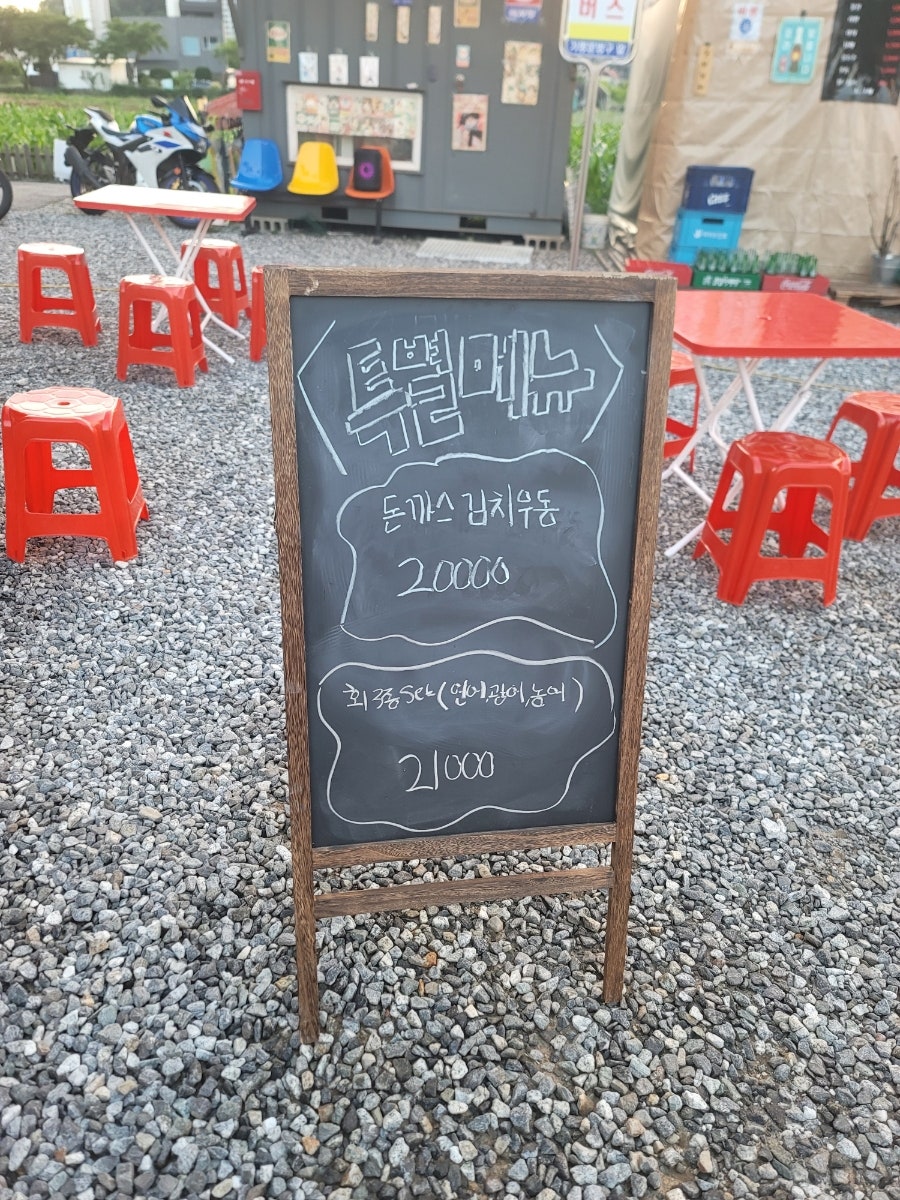 버스
특별메뉴
돈까스 김치우동
20000
회 3종 set (연어,광어,농어)
21000